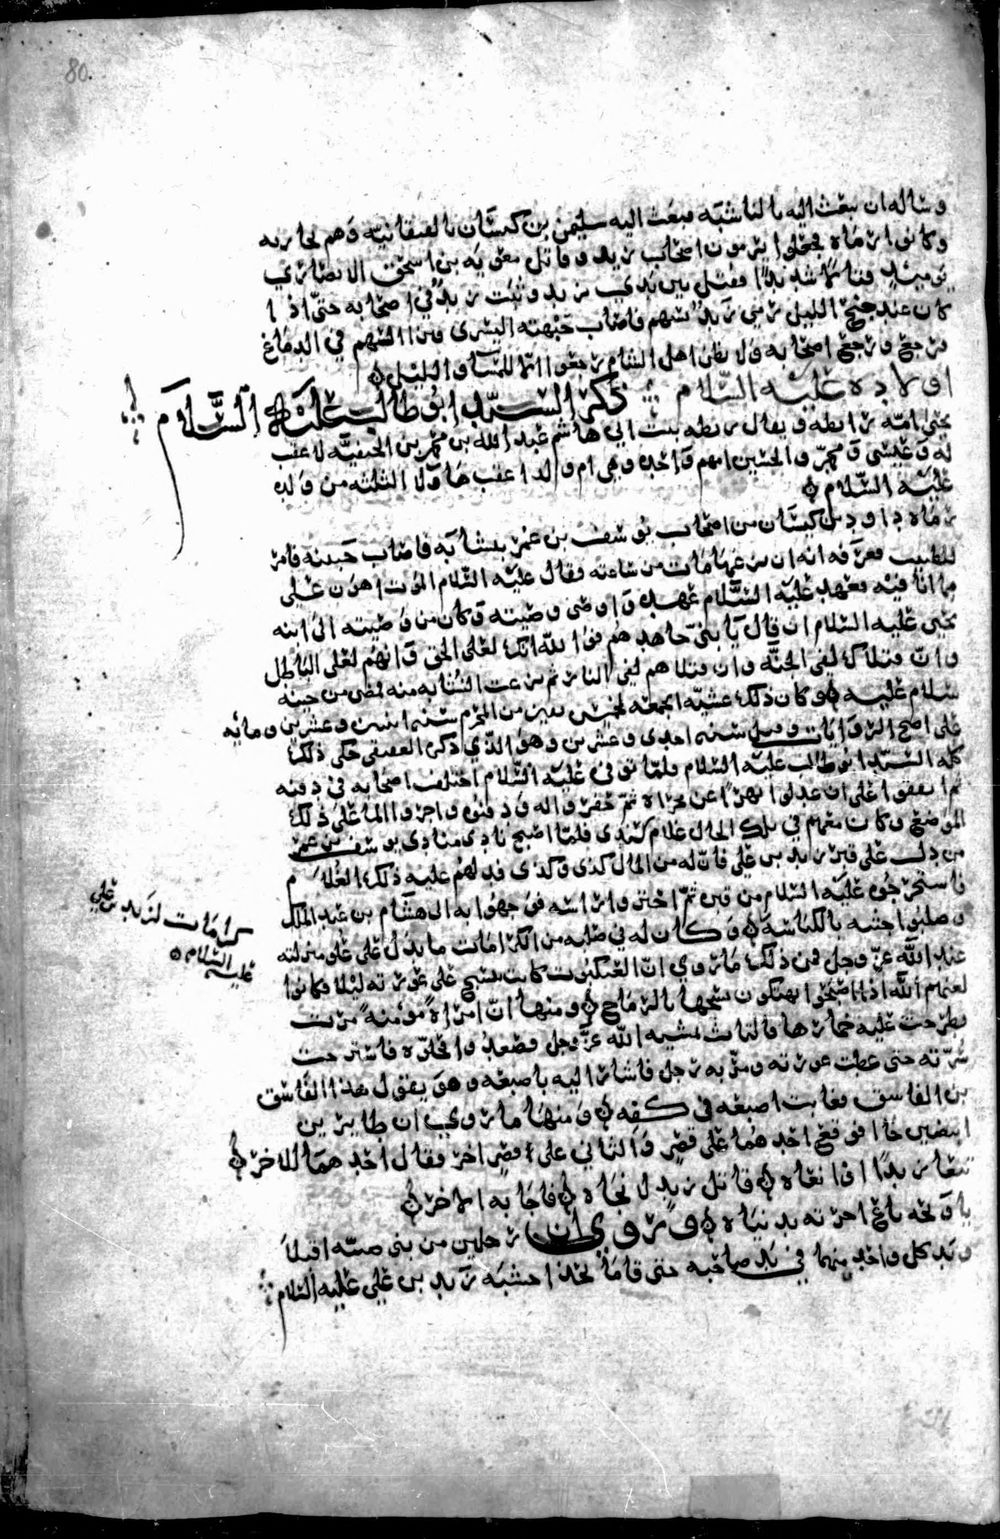 80
وساله ان يبعث اليه بالناشبه فبعث اليه سليمن بن كيسان بالقيقانيه وهم بخاريه
وكانوا رماه فجعلوا يرمون اصحاب زيد وقاتل معويه بن اسحق الانصاري
يومئذ قتالا شديدا فقتل بين يدي زيد وثبت زيد في اصحابه حتى اذا
كان عند جنح الليل رمي زيد بسهم فاصاب جبهته اليسرى فنزل السهم في الدماغ
فرجع ورجع اصحابه ولا يظن اهل الشام رجعوا الا للمسا والليل
اولاده عليه السلام ذكر السيد ابو طالب عليه السلام
يحيى امه رايطه ويقال ريطه بنت ابي هاشم عبد الله بن محمد بن الحنفيه لا عقب
له وعيسى ومحمد والحسين امهم واحده وهي ام ولد اعقب هاولا الثلثه من ولده
عليه السلام
رماه داود بن كيسان من اصحاب يوسف بن عمر بنشابه فاصاب جبينه فامر
للطبيب فعرفه انه ان نزعها مات من ساعته فقال عليه السلام الموت اهون علي
مما انا فيه فعهد عليه السلام عهده واوصى وصيته وكان من وصيته الى ابنه
يحيى عليه السلام ان قال يا بني جاهدهم فوالله انك لعلى الحق وانهم لعلى الباطل
وان قتلاك لفي الجنه وان قتلاهم لفي النار ثم نزعت النشابه منه فمضى من حينه
سلام عليه وكان ذلك عشيه الجمعه لخمس بقين من المحرم سنه اثنتين وعشرين ومائه
على اصح الروايات وقيل سنه احدى وعشرين وهو الذي ذكره العقيقي حكى ذلك
كله السيد ابو طالب عليه السلام فلما توفي عليه السلام اختلف اصحابه في دفنه
ثم اتفقوا على ان عدلوا نهرا عن مجراه ثم حفروا له ودفنوه واجروا الما على ذلك
الموضع وكان معهم في تلك الحال غلام سندي فلما اصبح نادى منادي يوسف بن عمر
من دل على قبر زيد بن علي فان له من المال كذى وكذى فدلهم عليه ذلك الغلام
فاستخرجوه عليه السلام من قبره ثم احتز وا راسه فوجهوا به الى هشام بن عبد الملك
وصلبوا جثته بالكناسه وكان له في صلبه من الكرامات ما يدل على علو منزلته
كرامات لزيد بن علي
عليه السلام
عند الله عز وجل فمن ذلك ما روي ان العنكبوت كانت تنسج على عورته ليلا فكانوا
لعنهم الله اذا اصبحوا يهتكون نسجها بالرماح ومنها ان امراه مومنه مرت
فطرحت عليه خمارها فالتاث بمشيه الله عز وجل فصعدوا فحلوه فاسترخت
سرته حتى غطت عورته ومر به رجل فاشار اليه باصبعه وهو يقول هذا الفاسق
بن الفاسق فغابت اصبعه في كفه ومنها ما روي ان طايرين
ابيضين جاا فوقع احدهما على قصر والثاني على قصر اخر فقال احدهما للاخر
تنعا زيدا او انعاه قاتل زيد لا نجاه فاجابه الاخر
يا ويحه باع اخرته بدنياه وروي ان رجلين من بني ضبه اقبلا
ويد كل واحد منهما في يد صاحبه حتى قاما بحذا خشبه زيد بن علي عليه السلام